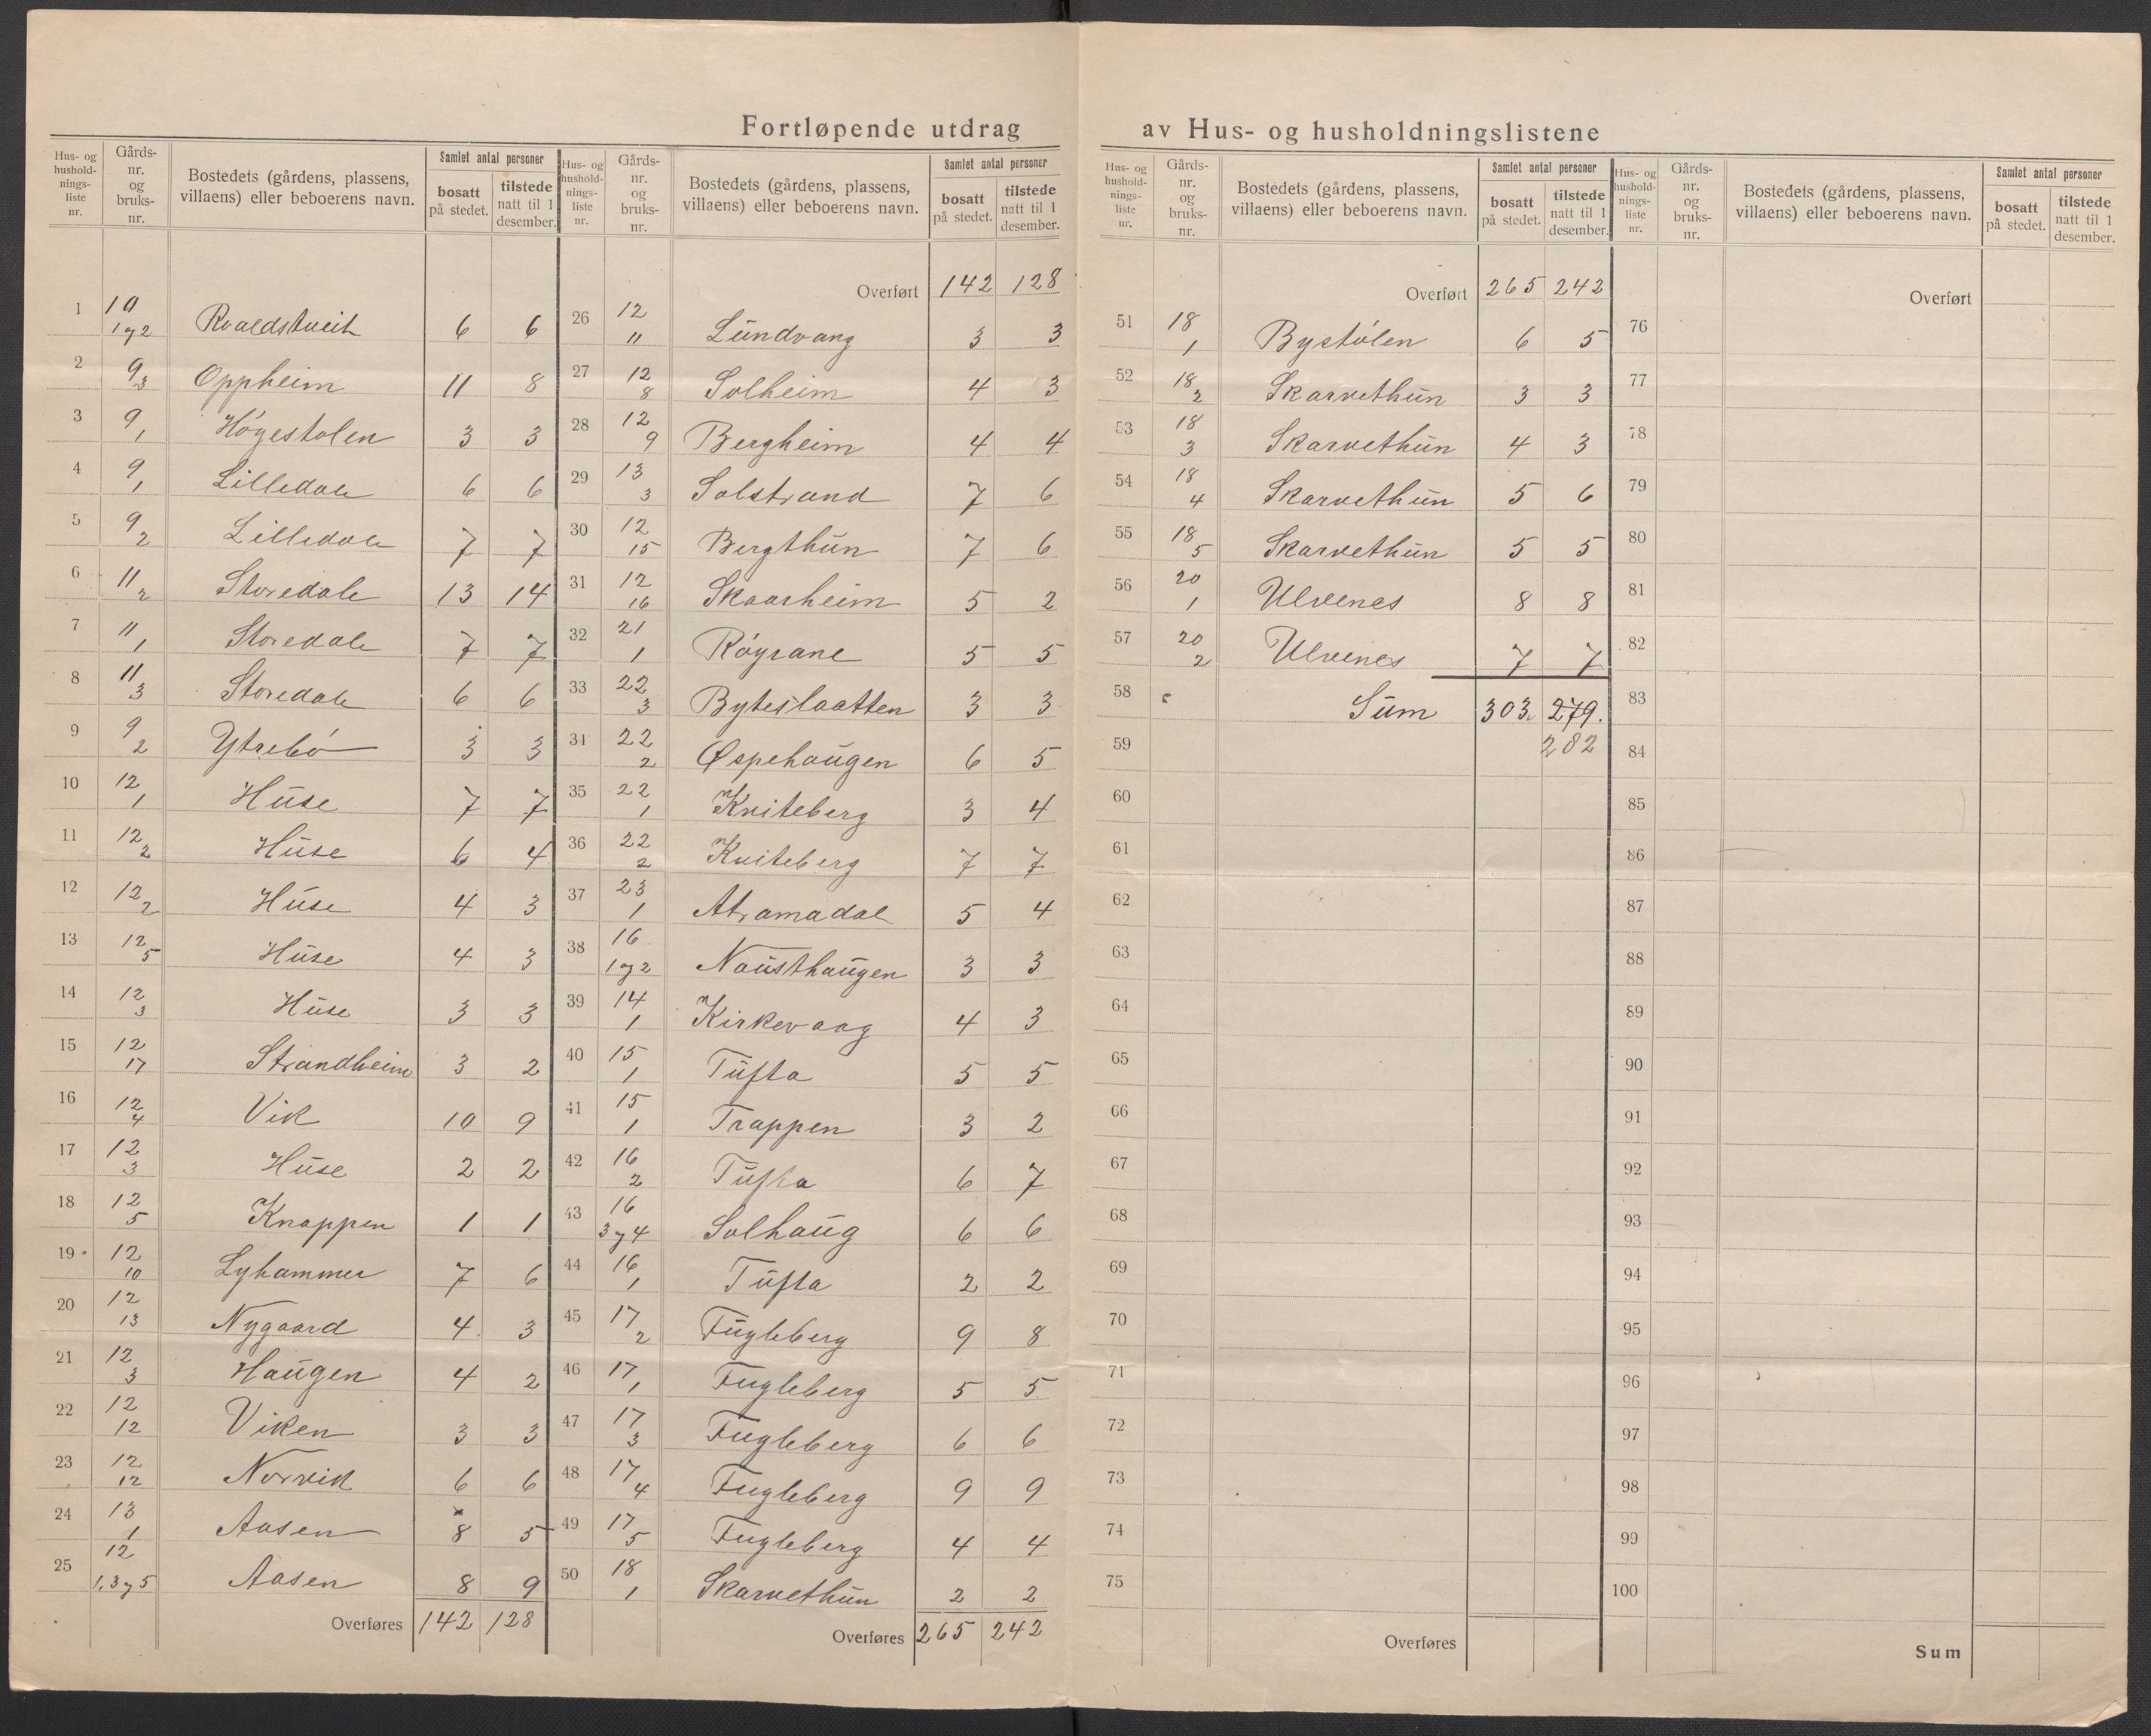 Fortløpende utdrag av Hus- og husholdningslistene
Hus- og hushold-nings-liste nr. | Gårds-nr. og bruks-nr. | Bostedets (gårdens, plassens, villaens) eller beboerens navn. | Samlet antal personer | bosatt på stedet. | tilstede natt til 1 desember.
1 | 10 1 og 2 | Roaldstveit | 6 | 6
2 | 9 3 | Oppheim | 11 | 8
3 | 9 1 | Høgestølen | 3 | 3
4 | 9 1 | Lilledale | 6 | 6
5 | 9 2 | Lilledale | 7 | 7
6 | 11 2 | Storedale | 13 | 14
7 | 11 1 | Storedale | 7 | 7
8 | 11 3 | Storedale | 6 | 6
9 | 9 2 | Ytrebø | 3 | 3
10 | 12 1 | Huse | 7 | 7
11 | 12 2 | Huse | 6 | 4
12 | 12 2 | Huse | 4 | 3
13 | 12 5 | Huse | 4 | 3
14 | 12 3 | Huse | 3 | 3
15 | 12 17 | Strandheim | 3 | 2
16 | 12 4 | Vik | 10 | 9
17 | 12 3 | Huse | 2 | 2
18 | 12 5 | Knappen | 1 | 1
19 | 12 10 | Lyhammer | 7 | 6
20 | 12 13 | Nygaard | 4 | 3
21 | 12 3 | Haugen | 4 | 2
22 | 12 12 | Viken | 3 | 3
23 | 12 12 | Norvik | 6 | 6
24 | 13 1 | Aasen | 8 | 5
25 | 12 1, 3 og 5 | Aasen | 8 | 9
Overføres | 142 | 128
Hus- og hushold-nings-liste nr. | Gårds-nr. og bruks-nr. | Bostedets (gårdens, plassens, villaens) eller beboerens navn. | Samlet antal personer | bosatt på stedet. | tilstede natt til 1 desember.
Overført | 142 | 128
26 | 12 11 | Lundvang | 3 | 3
27 | 12 8 | Solheim | 4 | 3
28 | 12 9 | Bergheim | 4 | 4
29 | 13 3 | Solstrand | 7 | 6
30 | 12 15 | Bergthun | 7 | 6
31 | 12 16 | Skaarheim | 5 | 2
32 | 21 1 | Røyrane | 5 | 5
33 | 22 3 | Byteslaatten | 3 | 3
34 | 22 2 | Øspehaugen | 6 | 5
35 | 22 1 | Kviteberg | 3 | 4
36 | 22 2 | Kviteberg | 7 | 7
37 | 23 1 | Atramadal | 5 | 4
38 | 16 1 og 2 | Nausthaugen | 3 | 3
39 | 14 1 | Kirkevaag | 4 | 3
40 | 15 1 | Tufta | 5 | 5
41 | 15 1 | Trappen | 3 | 2
42 | 16 2 | Tufta | 6 | 7
43 | 16 3 og 4 | Solhaug | 6 | 6
44 | 16 1 | Tufta | 2 | 2
45 | 17 2 | Fugleberg | 9 | 8
46 | 17 1 | Fugleberg | 5 | 5
47 | 17 3 | Fugleberg | 6 | 6
48 | 17 4 | Fugleberg | 9 | 9
49 | 17 5 | Fugleberg | 4 | 4
50 | 18 1 | Skarvethun | 2 | 2
Overføres | 265 | 242
Hus- og hushold-nings-liste nr. | Gårds-nr. og bruks-nr. | Bostedets (gårdens, plassens, villaens) eller beboerens navn. | Samlet antal personer | bosatt på stedet. | tilstede natt til 1 desember.
Overført | 265 | 242
51 | 18 1 | Bystølen | 6 | 5
52 | 18 2 | Skarvethun | 3 | 3
53 | 18 3 | Skarvethun | 4 | 3
54 | 18 4 | Skarvethun | 5 | 6
55 | 18 5 | Skarvethun | 5 | 5
56 | 20 1 | Ulvenes | 8 | 8
57 | 20 2 | Ulvenes | 7 | 7
58 | Sum | 303. | 279.
59 | 282
60
61
62
63
64
65
66
67
68
69
70
71
72
73
74
75
Overføres
Hus- og hushold-nings-liste nr. | Gårds-nr. og bruks-nr. | Bostedets (gårdens, plassens, villaens) eller beboerens navn. | Samlet antal personer | bosatt på stedet. | tilstede natt til 1 desember.
Overført
76
77
78
79
80
81
82
83
84
85
86
87
88
89
90
91
92
93
94
95
96
97
98
99
100
Sum